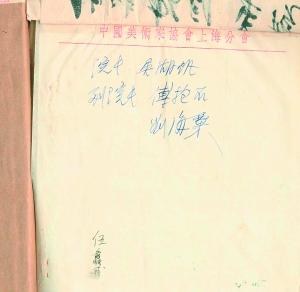 中國美術家協會上海分會
院长 吴湖帆
副院长 傅抱石
刘海粟
伍